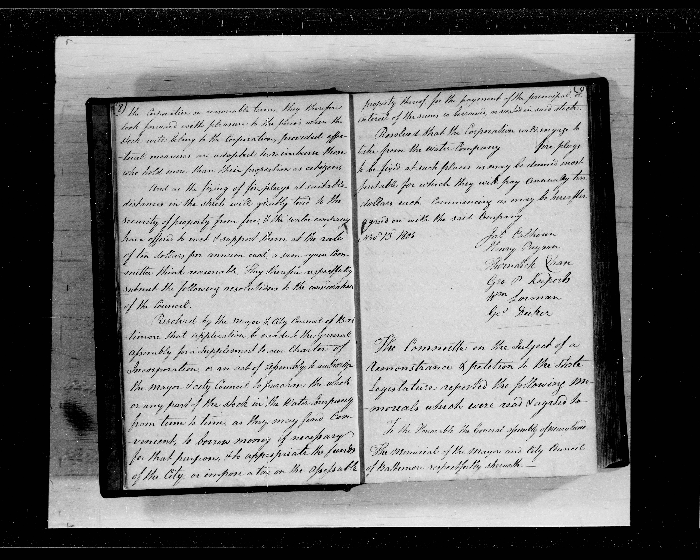 the Corporation on reasonable terms, they therefore
look forward with pleasure to the period when the
stock will belong to the Corporation, provided effec-
tual measures are adopted to reimburse those
who hold more than their proportion as citizens
And as the fixing of fire plugs at suitable
distances in the streets will greatly tend to the
security of property from fire, & the water company
have offered to erect & support them at the rate
of ten dollars per annum each, a sum your Com-
mittee think reasonable. They therefore respectfully
submit the following resolutions to the consideration
of the Council.
Resolved by the Mayor & City Council of Bal-
timore that application be made to the General
assembly for a supplement to our Charter of
Incorporation or an act of assembly to authorise
the Mayor & City Council to purchase the whole
or any part of the stock in the Water Company
from time to time, as they may find Con-
venient, to borrow money if necessary
for that purpose, & to appropriate the funds
of the City or impose a tax on the assessable
property thereof for the payment of the principal &
interest of the sums so borrowed, or
Resolved that the Corporation will engage to
take from the Water Company fire plugs
to be fixed at such places as may be deemed most
suitable for which they will pay annually ten
dollars each Commencing as may be hereafter
agreed on with the said Company
Jas. Calhoun
Henry Payson
Geo P Keeports
Wm Lorman
Geo Decker
The Committee on the Subject of a
Remonstrance & petition to the State
Legislature reported the following Me-
morials which were read & agreed to
To the Honorable the General assembly of Maryland
The Memorial of the Mayor and City Council
of Baltimore respectfully sheweth —